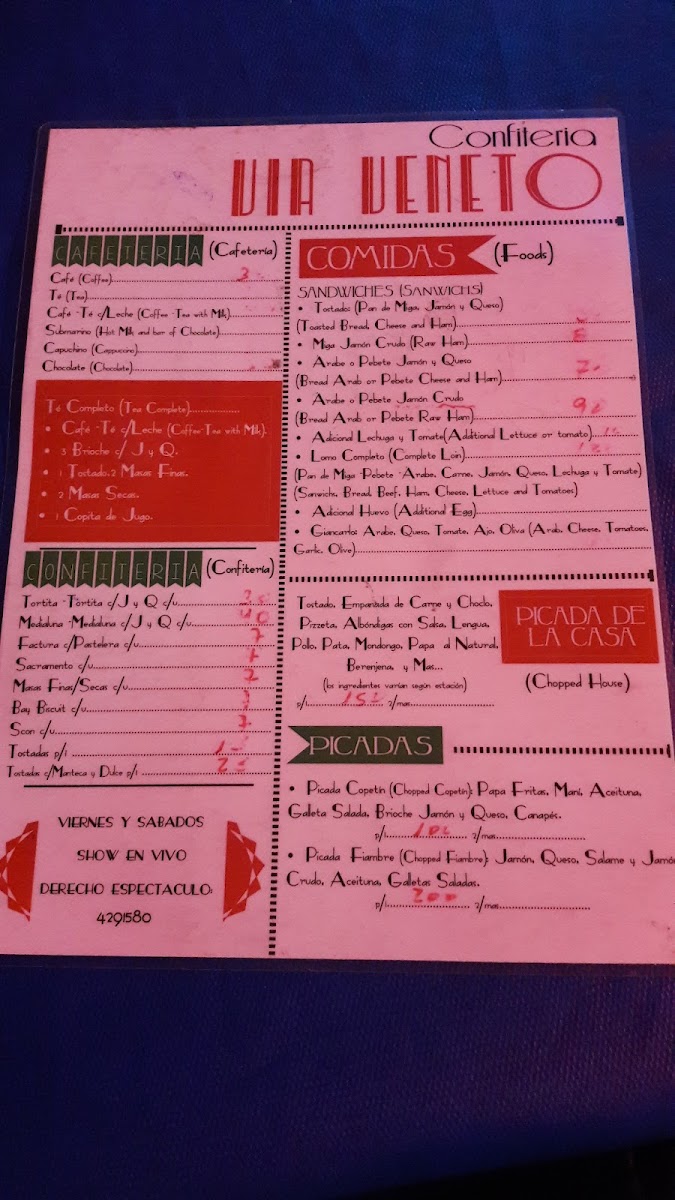 Confiteria
VIA VENETO
CAFETERIA (Cafetería)
Café (Coffee)
Té (Tea)
Café -Té c/Leche (Coffee -Tea with Milk)
Submarino (Hot Milk and bar of Chocolate)
Capuchino (Cappuccino)
Chocolate (Chocolate)
Té Completo (Tea Complete)
• Café -Té c/Leche (Coffee-Tea with Milk).
• 3 Brioche c/ J y Q.
• 1 Tostado.2 Masas Finas.
• 2 Masas Secas.
• 1 Copita de Jugo.
CONFITERIA (Confitería)
Tortita -Tortita c/J y Q c/u
Medialuna -Medialuna c/J y Q c/u
Factura c/Pastelera c/u 7
Sacramento c/u
Masas Finas/Secas c/u
Bay Biscuit c/u
Scon c/u
Tostadas p/1
Tostadas c/Manteca y Dulce p/1
VIERNES Y SABADOS
SHOW EN VIVO
DERECHO ESPECTACULO:
4291580
COMIDAS (Foods)
SANDWICHES (SANWICHS)
• Tostado: (Pan de Miga, Jamón y Queso)
(Toasted Bread, Cheese and Ham)
• Miga Jamón Crudo (Raw Ham)
• Arabe o Pebete Jamón y Queso
(Bread Arab or Pebete Cheese and Ham)
• Arabe o Pebete Jamón Crudo
(Bread Arab or Pebete Raw Ham)
• Adicional Lechuga y Tomate(Additional Lettuce or tomato)
• Lomo Completo (Complete Loin)
(Pan de Miga -Pebete -Arabe, Carne, Jamón, Queso, Lechuga y Tomate)
(Sanwichs, Bread, Beef, Ham, Cheese, Lettuce and Tomatoes)
• Adicional Huevo (Additional Egg)
• Giancarlo: Arabe, Queso, Tomate, Ajo, Oliva (Arab, Cheese, Tomatoes,
Garlic, Olive)
PICADA DE
LA CASA
(Chopped House)
Tostado, Empanada de Carne y Choclo,
Pizzeta, Albóndigas con Salsa, Lengua,
Pollo, Pata, Mondongo, Papa al Natural,
Berenjena, y Mas...
(los ingredientes varrían según estación)
p/1 2/mas
PICADAS
• Picada Copetín (Chopped Copetín): Papa Fritas, Maní, Aceituna,
Galleta Salada, Brioche Jamón y Queso, Canapés.
p/1 2/mas
• Picada Fiambre (Chopped Fiambre): Jamón, Queso, Salame y Jamón
Crudo, Aceituna, Galletas Saladas.
p/1 200 2/mas